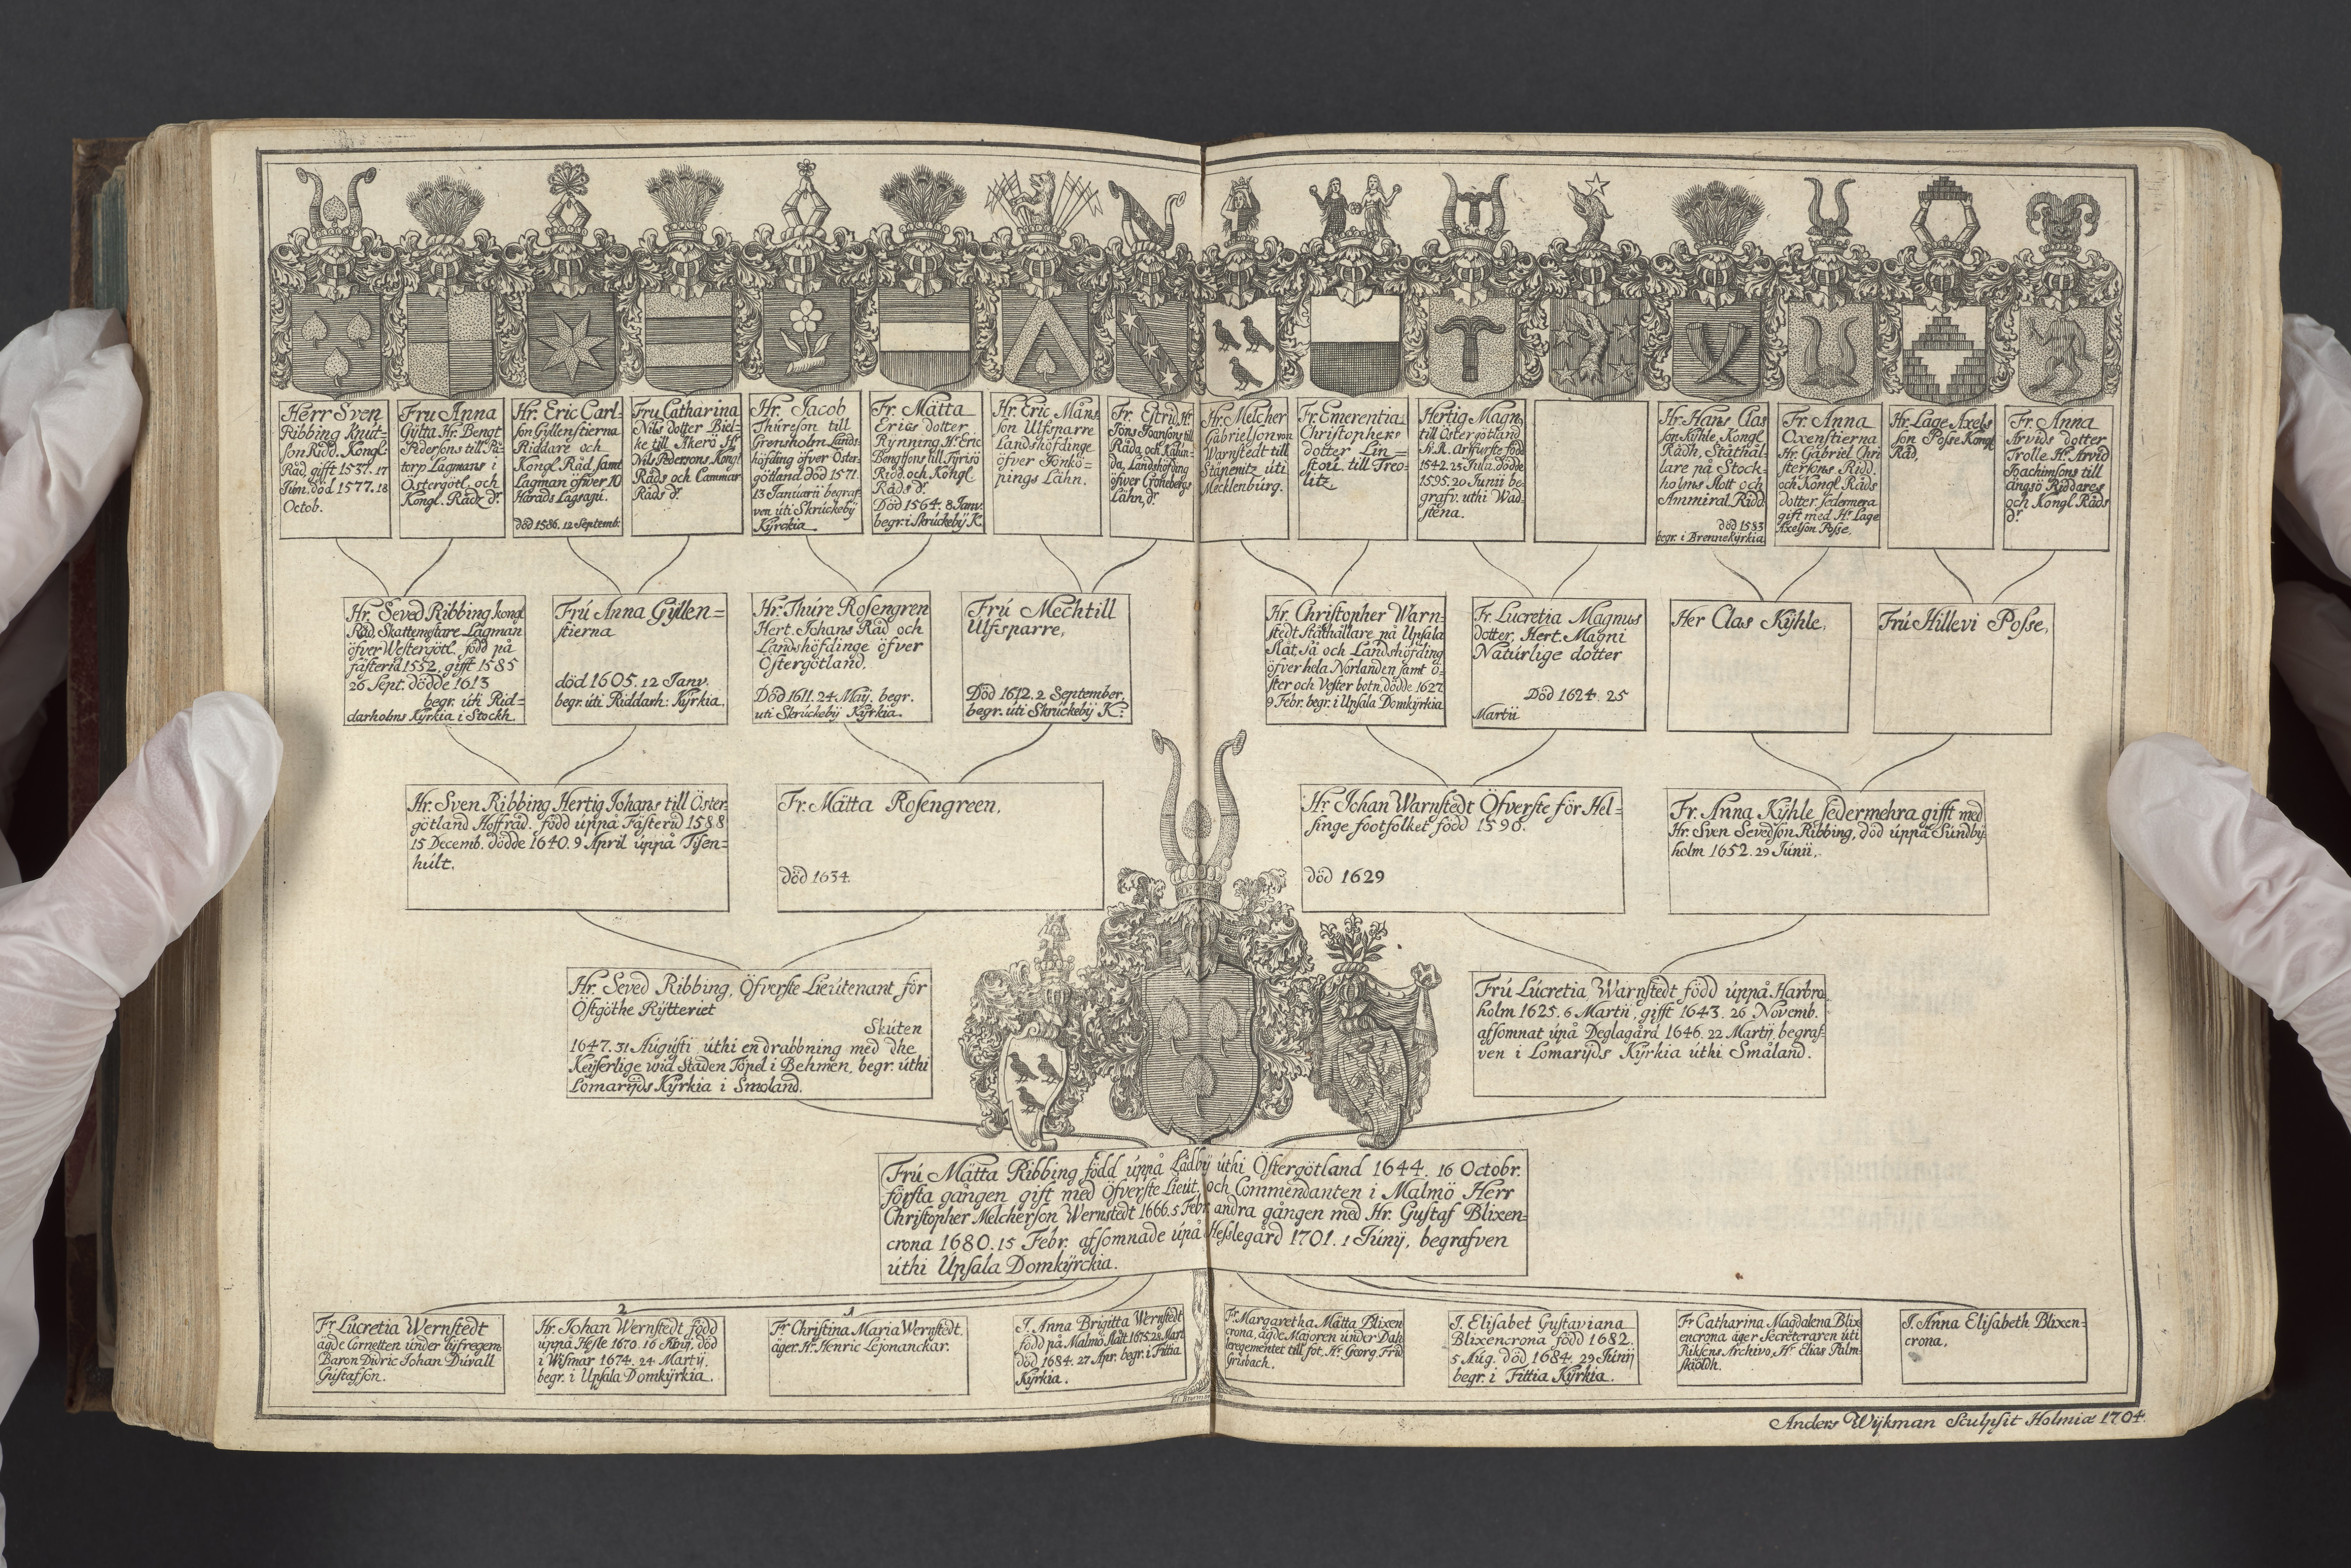 Herr Sven
Ribbing Knut-
son Ridd. Kongl.
Råd gifft 1537. 17
Júni. död 1577. 18
Octob.
Fru Anna
Gÿlta Hr. Bengt
Pedersöns till Pä-
torp Lagmans i
Östergötl. och
Kongl. Rådz dr.
Hr. Eric Carl-
son Gyllenstierna
Riddare och
Kongl. Råd samt
Lagman öfver 10
Härads Lagsagu.
död 1586. 12 Septemb.
Fru Catharina
Nils dotter Biel-
ke till Åkerö Hr
Nils Pedersons Kongl
Råds och Cammar
Råds dr.
Hr. Jacob
Thúreson till
Grensholm Lands-
höfding öfver Öster-
götland död 1571.
13 Janúarii begraf-
ven úti Skrúckebÿ
Kÿrckia
Fr. Mätta
Erics dotter
Rÿnning Hr Eric
Bengtsons till Fyrisö
Ridd. och Kongl
Råds dr.
Död 1564. 8 Janv.
begr. i Skrúckebÿ K.
Hr. Eric Måns
son Ulfsparre
Landshöfdinge
öfver Jönkö-
pings Lähn.
Fr. Estrid Hr.
Jöns Joansons till
Råda och Kahin-
da, Landshöfding
öfver Cronebergs
Lähn, dr.
Hr. Melcher
Gabrielson von
Warnstedt till
Stänenitz úti
Mecklenbúrg.
Fr. Emerentia
Christophers
dotter Lin=
stou till Treo-
litz.
Hertig Magn9
till Östergötland
Sv. R. Arfúrste född
1542. 25 Jula. dödde
1595. 20 Junii be-
grafv. uthi Wad-
stena.
Hr. Hans Clas
son Kÿhle Kongl
Rådh, Ståthål-
lare på Stock-
holms slott och
Ammiral Ridd.
död 1583
begr. i Brennekÿrkia
Fr. Anna
Oxenstierna
Hr. Gabriel Chri
stersons Ridd.
och Kongl Råds
dotter. sedermera
gift med Hr Lage
Axelson Posse.
Hr. Lage Axels
son Posse Kongl
Råd.
Fr. Anna
Arvids dotter
Trolle Hr. Arvid
Joachimsons till
Ängsö Riddares
och Kongl Råds
dr.
Hr. Seved Ribbing kongl
Råd, Skattemestare Lagman
öfver Westergötl. född på
fästerid 1552, gifft 1585
26 Sept. dödde 1613
begr. úti Rid-
darholms Kÿrkia i Stockh.
Frú Anna Gÿllen=
stierna
död 1605. 12 Janv.
begr. úti Riddarh: Kÿrkia.
Hr. Thúre Rosengren
Hert. Johans Råd och
Landshöfdinge öfver
Östergötland.
Död 1611. 24. Maÿ. begr.
uti Skrúckebÿ Kÿrkia.
Frú Mechtill
Ulfsparre,
Död 1612. 2 September,
begr. úti Skrúckebÿ K:
Hr. Christopher Warn-
stedt Ståthållare på Upsala
slåt så och Landshöfding
öfver hela Norlanden samt ö-
ster och Vester botn. dödde 1627.
9 Febr. begr. i Upsala Domkÿrkia
Fr. Lucretia Magnus
dotter, Hert. Magni
Natúrlige dotter
Död 1624. 25
Martii
Her Clas Kÿhle,
Frú Hillevi Posse,
Hr. Sven Ribbing Hertig Johans till Öster-
götland Hoffråd. född úppå Fästerid 1588
15 Decemb. dödde 1640. 9 April úppå Tisen-
húlt.
Fr. Mätta Rosengreen,
död 1634.
Hr. Johan Warnstedt Öfverste för Hel=
singe footfolket född 1590.
död 1629
Fr. Anna Kÿhle sedermehra gifft med
Hr. Sven Sevedson Ribbing, död úppå Súndbÿ-
holm 1652. 29 Júnii.
Hr. Seved Ribbing, Öfverste Lieútenant för
Östgöthe Rÿtteriet
Skúten
1647. 31 Aúgústi úthi en drabbning med dhe
Keÿserlige wid Staden Töpel i Behmen, begr. úthi
Lomarÿds Kÿrkia i Smoland.
Frú Lúcretia Warnstedt född úppå Harbro
holm 1625. 6 Martii, gifft 1643. 26 Novemb.
afsomnat úpå Deglagård 1646. 22 Martÿ, begraf-
ven i Lomarÿds Kÿrkia úthi Småland.
Frú Mätta Ribbing född úppå Lädbÿ úthi Östergötland 1644. 16 Octobr.
första gången gift med Öfverste Lieút. och Commendanten i Malmö Herr
Christopher Melcherson Wernstedt 1666. 5 Febr. andra gången med Hr. Gustaf Blixen=
crona 1680. 15 Febr. afsomnade úpå Hesslegård 1701. 1 Júnÿ, begrafven
úthi Úpsala Domkÿrckia.
2
1
Fr Lúcretia Wernstedt
ägde Cornetten únder Lÿfregem.
Baron Didric Johan Dúvall
Gústafson.
Hr. Johan Wernstedt född
úppå Hesle 1670. 16 Aúg. död
i Wismar 1674. 24 Martÿ.
begr. i Upsala Domkÿrkia.
Fr Christina Maria Wernstedt,
äger Hr. Henric Lejonanckar.
J. Anna Brigitta Wernstedt
född på Malmö Slått 1675. 28. Mart
död 1684. 27 Apr. begr. i Fittia
Kÿrkia.
Fr. Margaretha Mätta Blixen
crona, ägde Majoren únder Dah
leregementet till fot. Hr. Georg Frid
Grisbach.
J. Elisabet Gústaviana
Blixencrona född 1682.
5 Aúg. död 1684. 29 Júnÿ
begr. i Fittia Kÿrkia.
Fr Catharina Magdalena Blix
encrona äger Secreteraren úti
Riksens Archivo, Hr Elias Palm-
skiöldh.
J. Anna Elisabeth Blixen-
crona.
Anders Wÿkman Sculpsit Holmiæ 1704.